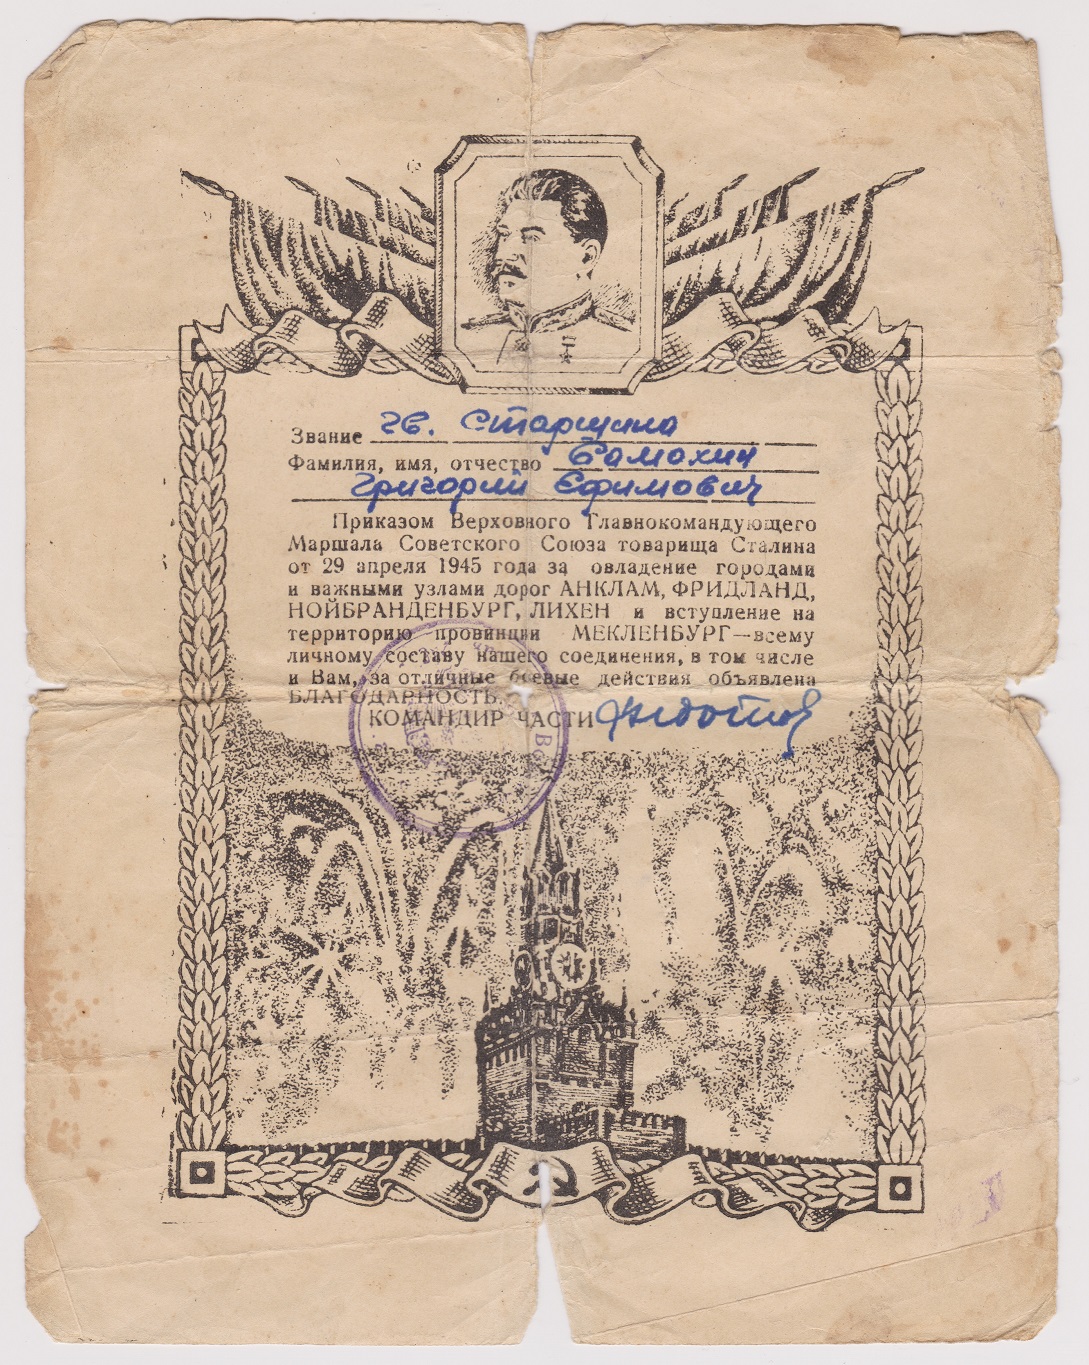 Звание гв. Старшина
Фамилия, имя, отчество Самохин
Григорий Ефимович
Приказом Верховного Главнокомандующего
Маршала Советского Союза товарища Сталина
от 29 апреля 1945 года за овладение городами
и важными узлами дорог АНКЛАМ, ФРИДЛАНД,
НОЙБРАНДЕНБУРГ, ЛИХЕН и вступление на
территорию провинции МЕКЛЕНБУРГ—всему
личному составу нашего соединения, в том числе
и Вам, за отличные боевые действия объявлена
БЛАГОДАРНОСТЬ.
КОМАНДИР ЧАСТИ